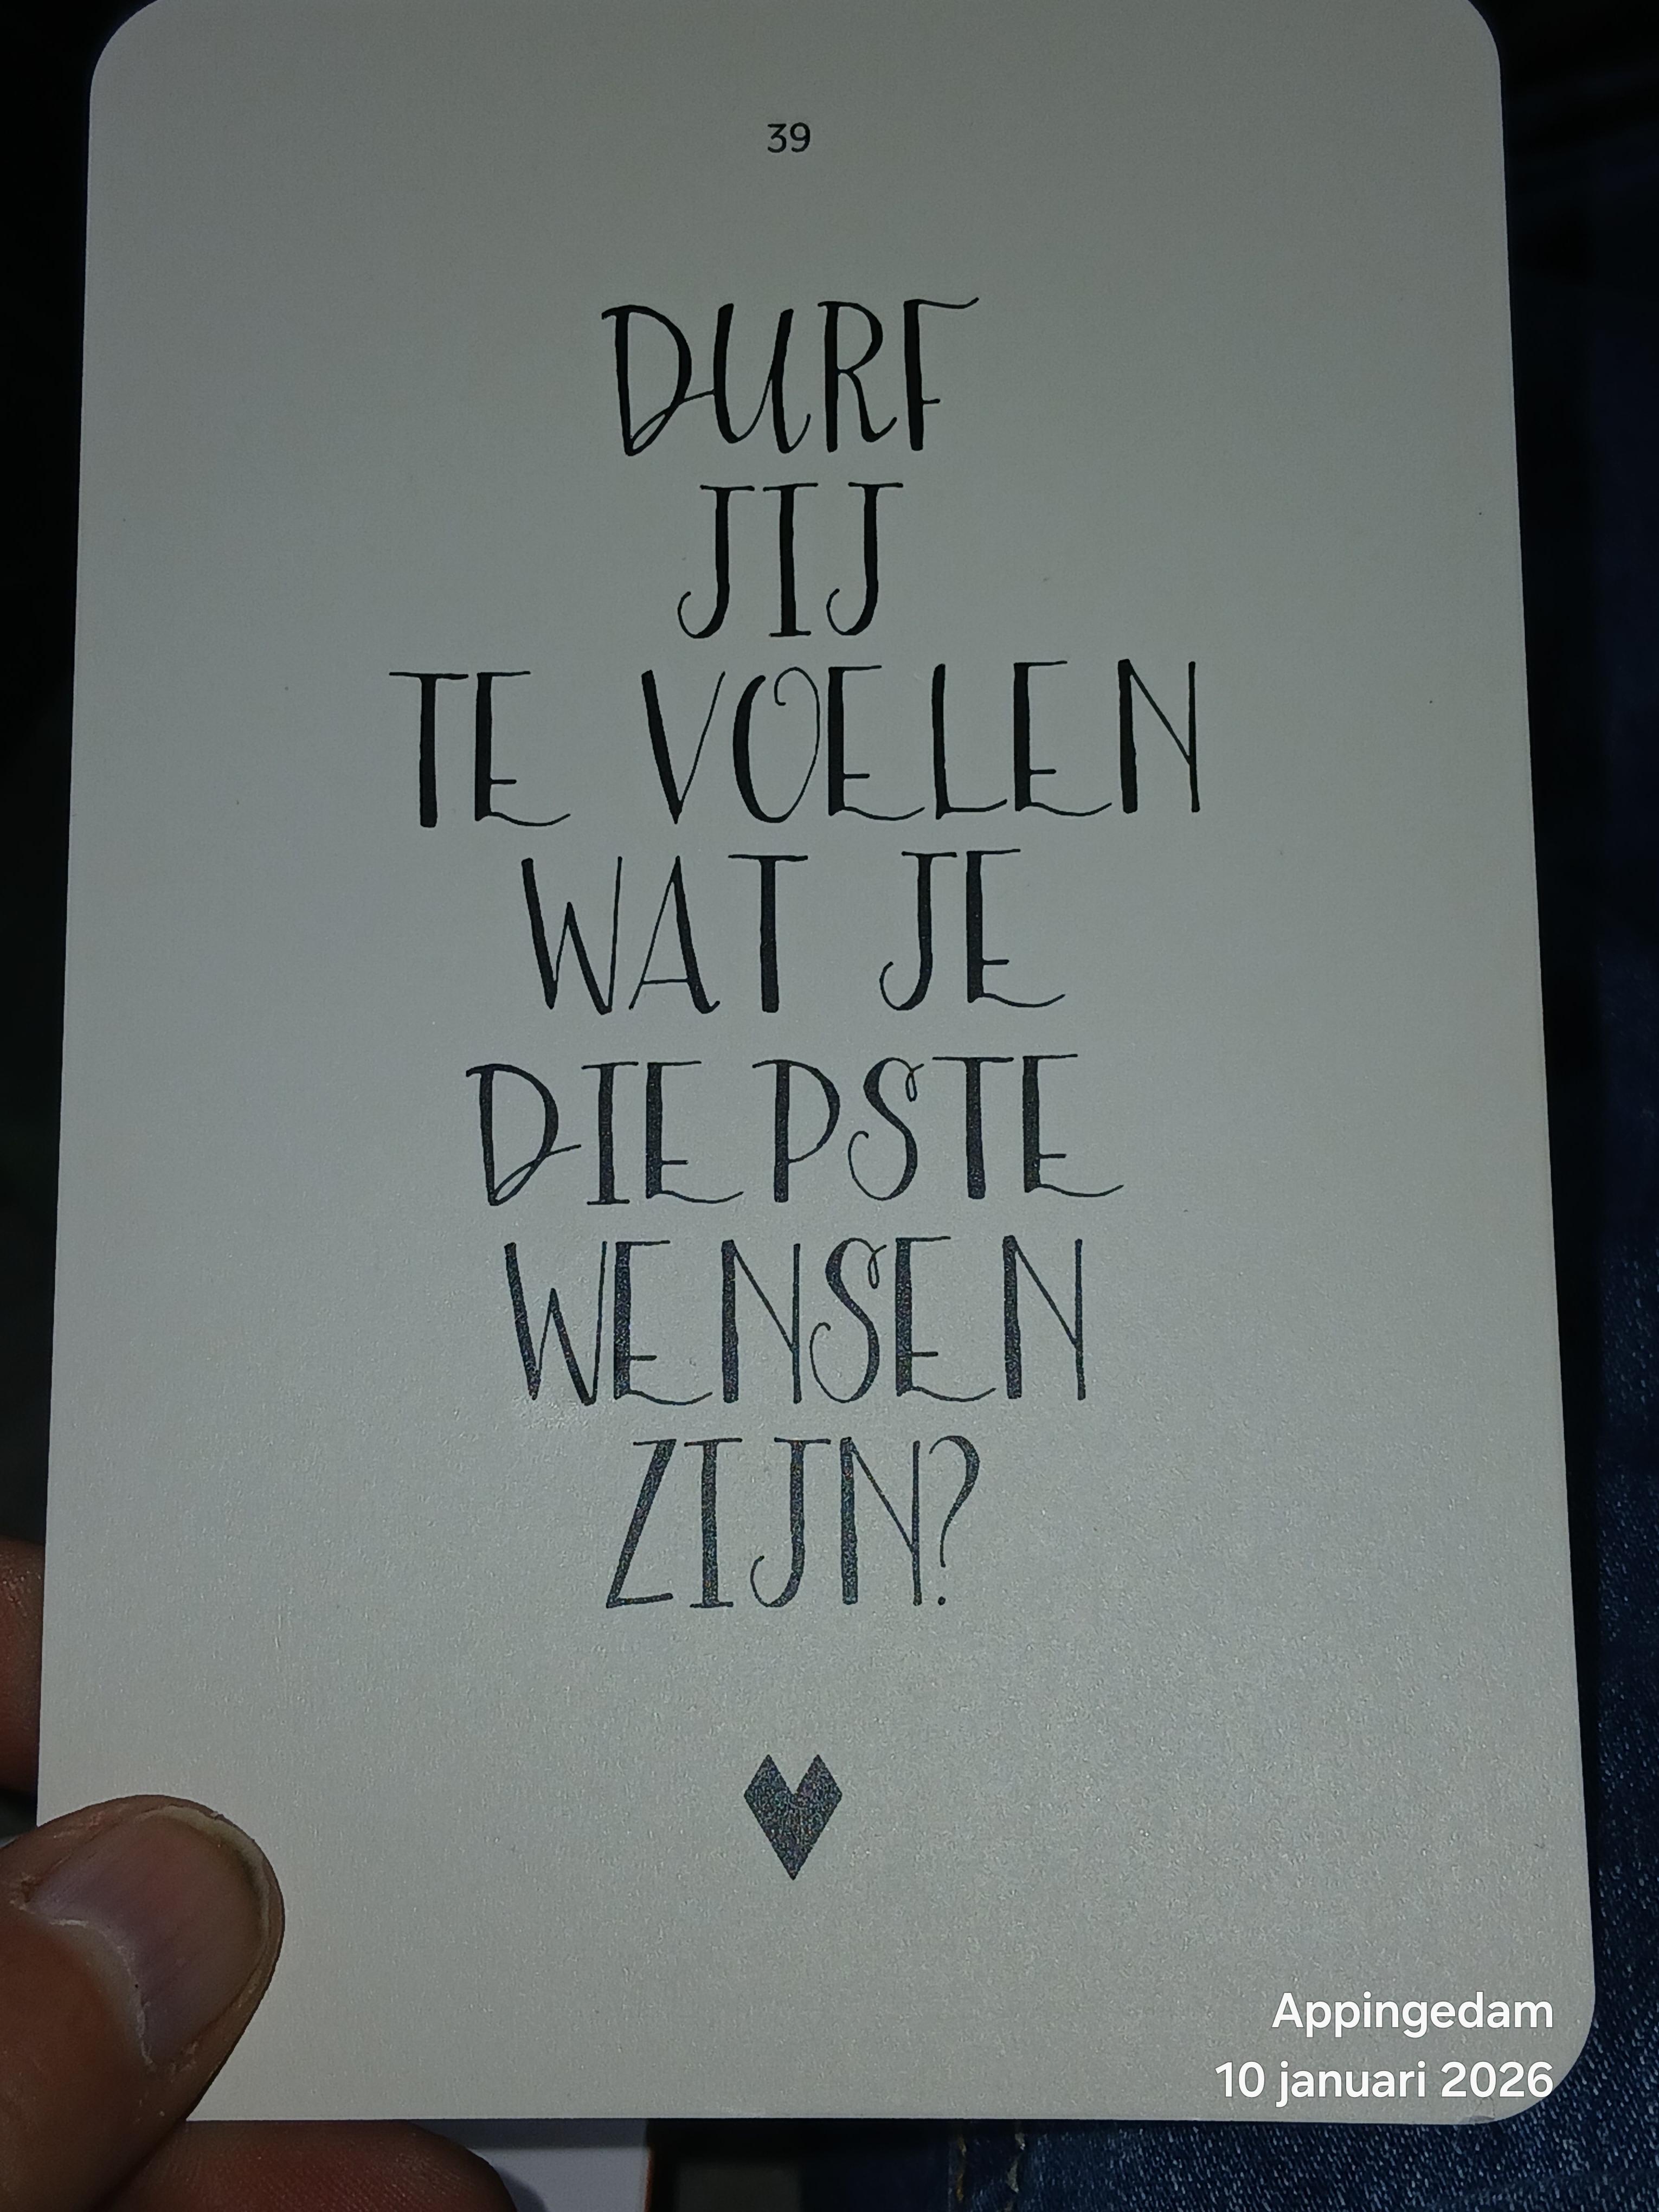 39
DURF
JIJ
TE VOELEN
WAT JE
DIEPSTE
WENSEN
ZIJN?
Appingedam
10 januari 2026